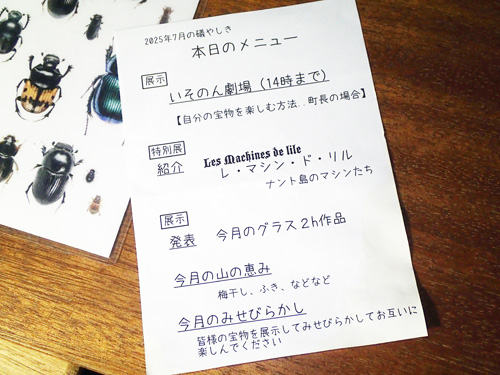 2025年7月の礒やしき
本日のメニュー
展示
いそのん劇場(14時まで)
【自分の宝物を楽しむ方法..町長の場合】
特別展
紹介
Les Machines de lile
レ・マシン・ド・リル
ナント島のマシンたち
展示
発表 今月のグラス2h作品
今月の山の恵み
梅干し、ふき、などなど
今月のみせびらかし
皆様の宝物を展示してみせびらかしてお互いに
楽しんでください